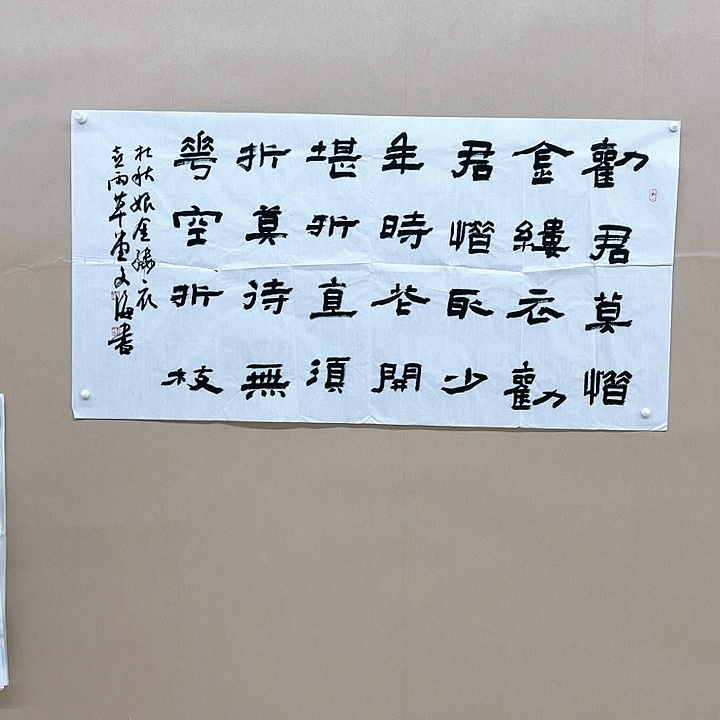 勸君莫惜
金縷衣勸
君惜取少
年時花開
堪折直須
折莫待無
華空折枝
杜秋娘金縷衣
喜雨草堂文海書